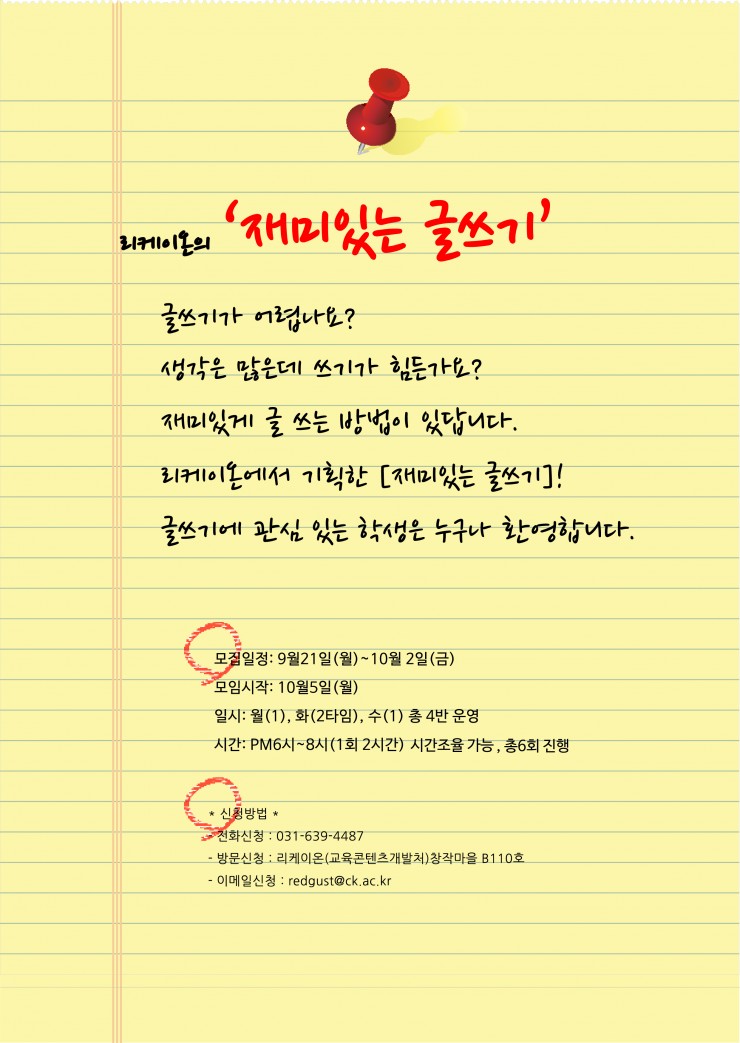 리케이온의 ‘재미있는 글쓰기’
글쓰기가 어렵나요?
생각은 많은데 쓰기가 힘든가요?
재미있게 글 쓰는 방법이 있답니다.
리케이온에서 기획한 [재미있는 글쓰기]!
글쓰기에 관심 있는 학생은 누구나 환영합니다.
모집일정: 9월21일(월)~10월 2일(금)
모임시작: 10월5일(월)
일시: 월(1), 화(2타임), 수(1) 총 4반 운영
시간: PM6시~8시(1회 2시간) 시간조율 가능, 총6회 진행
* 신청방법 *
- 전화신청 : 031-639-4487
- 방문신청 : 리케이온(교육콘텐츠개발처)창작마을 B110호
- 이메일신청 : redgust@ck.ac.kr